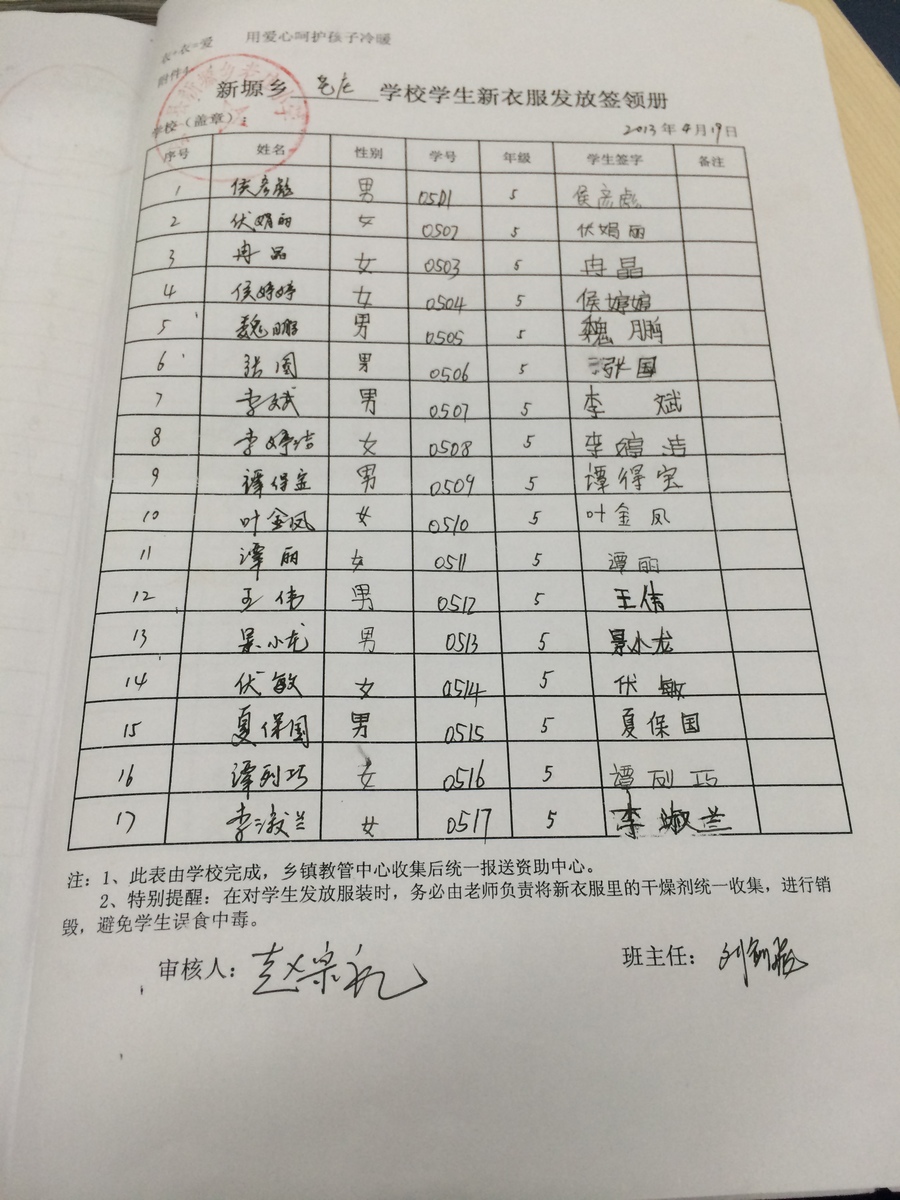 衣+衣=爱 用爱心呵护孩子冷暖
附件4
新塬乡 老庄 学校学生新衣服发放签领册
学校（盖章）： 2013年4月19日
序号 姓名 性别 学号 年级 学生签字 备注
1 侯彦彪 男 0501 5 侯彦彪
2 伏娟丽 女 0502 5 伏娟丽
3 冉晶 女 0503 5 冉晶
4 侯婷婷 女 0504 5 侯婷婷
5 魏鹏 男 0505 5 魏鹏
6 张国 男 0506 5 张国
7 李斌 男 0507 5 李斌
8 李婷洁 女 0508 5 李婷洁
9 谭得宝 男 0509 5 谭得宝
10 叶金凤 女 0510 5 叶金凤
11 谭丽 女 0511 5 谭丽
12 王伟 男 0512 5 王伟
13 景小龙 男 0513 5 景小龙
14 伏敏 女 0514 5 伏敏
15 夏保国 男 0515 5 夏保国
16 谭列巧 女 0516 5 谭列巧
17 李淑兰 女 0517 5 李淑兰
注：1、此表由学校完成，乡镇教管中心收集后统一报送资助中心。
2、特别提醒：在对学生发放服装时，务必由老师负责将新衣服里的干燥剂统一收集，进行销
毁，避免学生误食中毒。
审核人：赵宗礼 班主任：